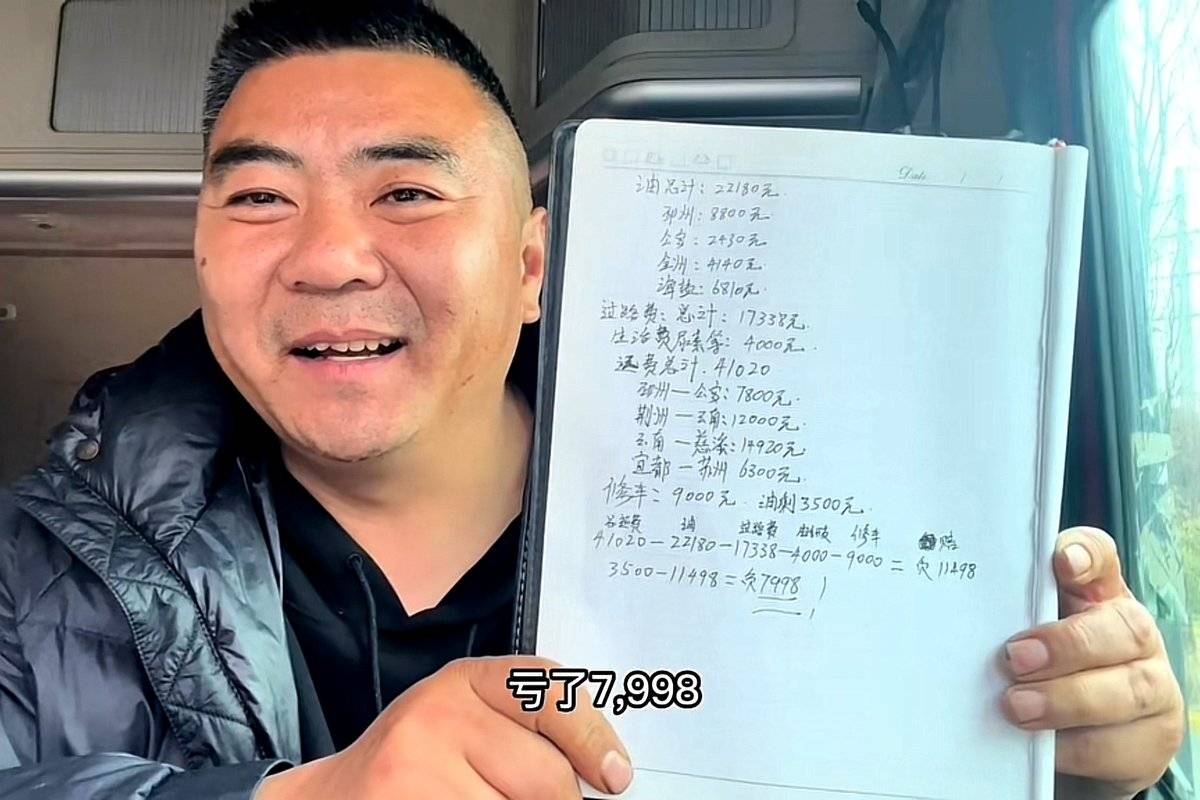 Date / /
油总计：22180元.
邳州：8800元.
公安：2430元
金洲：4140元
海盐：6810元.
过路费：总计：17338元.
生活费尿素等：4000元.
运费总计.41020
邳州—公安：7800元.
荆州—玉角：12000元.
玉角—慈溪：14920元
宜都—苏州 6300元.
修车：9000元. 油剩3500元.
总运费 油 过路费 生活 修车 赔
41020-22180-17338-4000-9000=欠11498
3500-11498=欠7998
亏了7,998